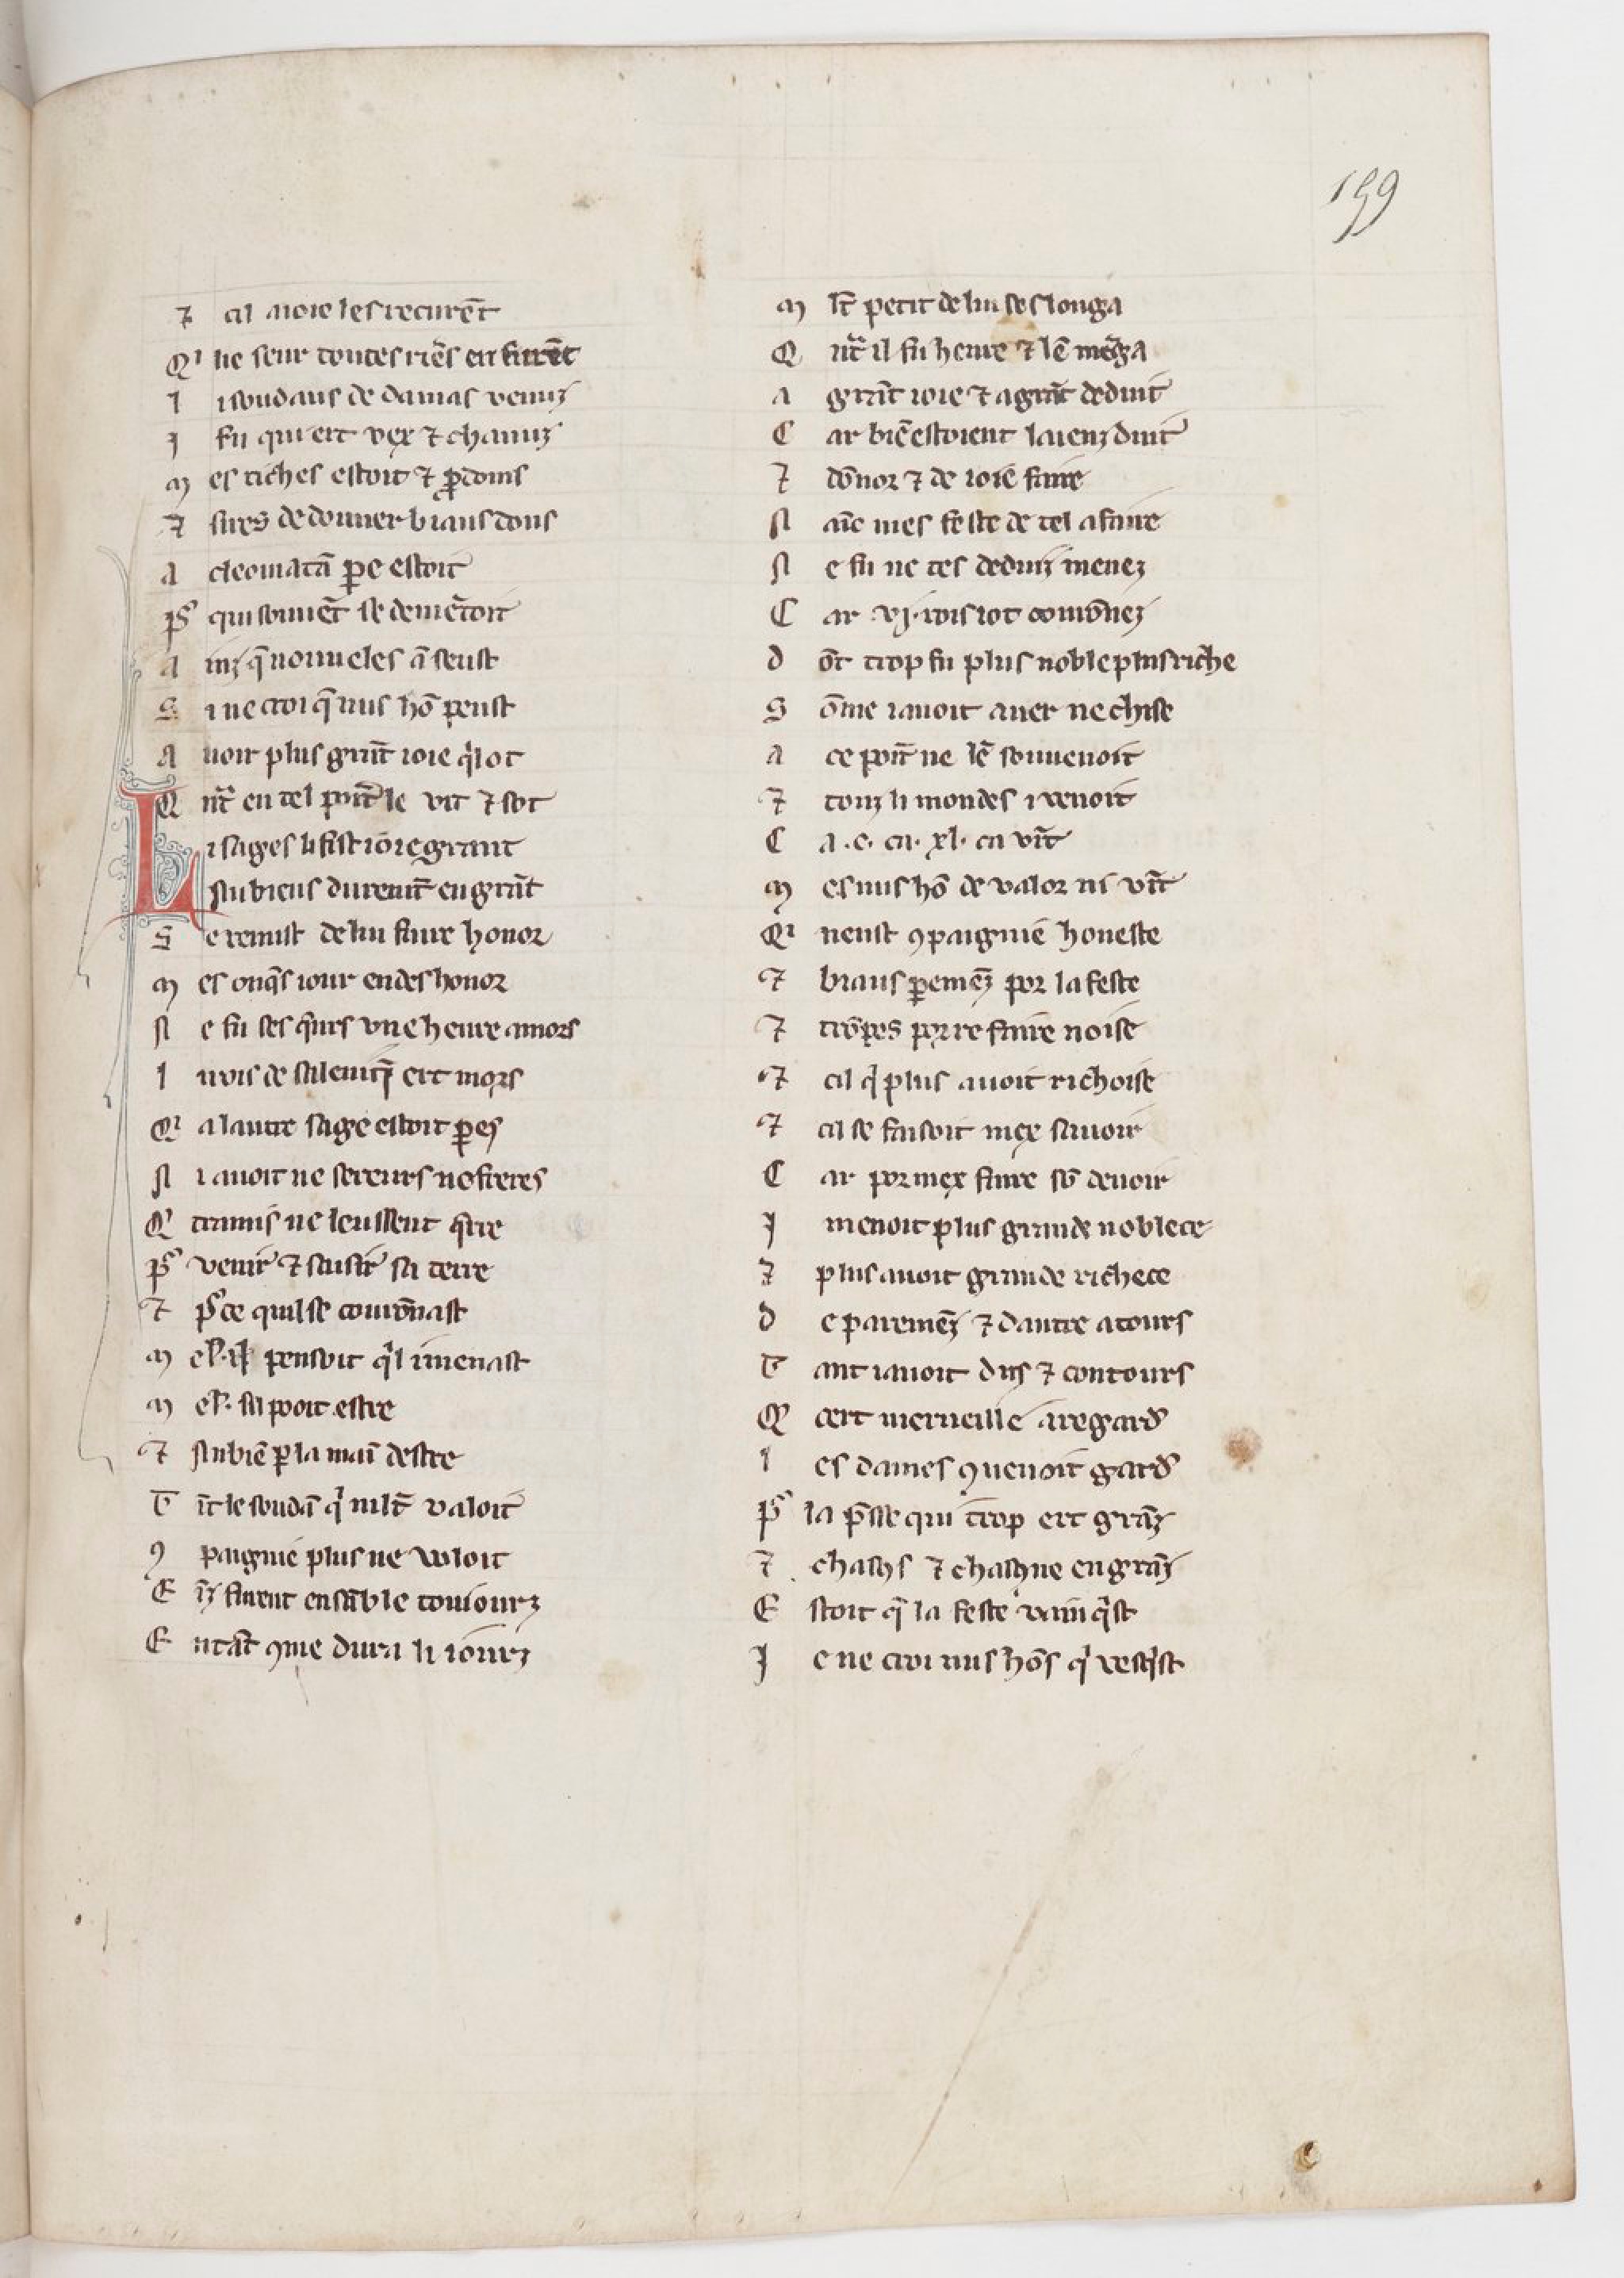 159
⁊ cil a ioie les recurēt
Qi lie seur toutes riēs en furēt
l i soudans de damas venuz
j fu qui ert vex ⁊ chanuz
m es riches estoit ⁊ ꝓdoms
⁊ sires de donner biaus dons
a cleomatā pere estoit
ps qui souuēt se demētoit
a inz q̄ nouueles ā seust
S i ne croi q̄ nus hō peust
a uoir plus grāt ioie qͥl ot
Q nt̄ en tel point le vit ⁊ sot
L i sages li fist ioie grant
nubiens duremt̄ en grāt
S e remist de lui faire honor
m es onq̄s iour en deshonor
n e fu ses cuers vne heure amors
l i rois de ert mors
Qi a lautre sage estoit peres
n i auoit ne sereurs ne freres
Q tramis ne leussent q̄rre
ps venir ⁊ saisir sa terre
⁊ ps ce quil se courōnast
m pensoit qͥl i menast
m sil pooit estre
⁊ nubiē ꝑ la main destre
T īt le soudā qͥ mlt̄ valoit
9 paignie plus ne voloit
E īz furent ensāble touiourz
E ntāt 9me dura li iourz
m lt̄ petit de lui seslonga
Q nt̄ il fu heure ⁊ lē mēga
a grāt ioie ⁊ a grāt deduit
C ar biē estoient laienz duit
⁊ dōnor ⁊ de ioie faire
n āc mes feste de tel afaire
n e fu ne tes deduiz menez
C ar .vj. rois iot courōnez
d ōt trop fu plus noble plus riche
S ōme i auoit auer ne chiſe
a ce poīt ne lē souuenoit
⁊ touz li mondes i venoit
C a .c. ca. xl. ca vīt
m es nus hō de valor ni vīt
Qi neust 9paignie honeste
⁊ biaus ꝑemēz por la feste
⁊ trōpes por re faire noise
⁊ cil qͥ plus auoit richoise
⁊ cil se faisoit mex sauoir
C ar por mex faire sō deuoir
j menoit plus grande noblece
⁊ plus auoit grande richece
d e paremēz ⁊ dautre atours
T ant i auoit dus ⁊ contours
Q cert merueille a regard᷑
l es dames 9uenoit gard᷑
ps la p̄sse qui trop ert grāz
⁊ chascūs ⁊ chascūne engrāz
E stoit q̄ la feste vainqͥst
J e ne croi nus hōs qͥ vesqͥst